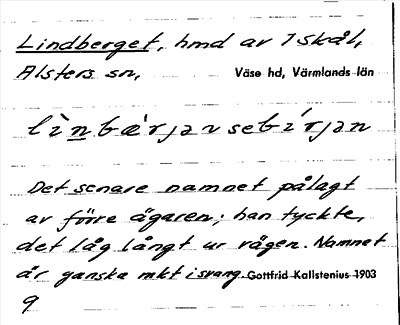 Lindberget, hmd av 1 Skål,
Alsters sn, Väse hd, Värmlands län
lìnbæ̀rjən sebírjən
Det senare namnet pålagt
av förre ägaren; han tyckte,
det låg långt ur vägen. Namnet
är ganska mkt i svang. Gottfrid Kallstenius 1903